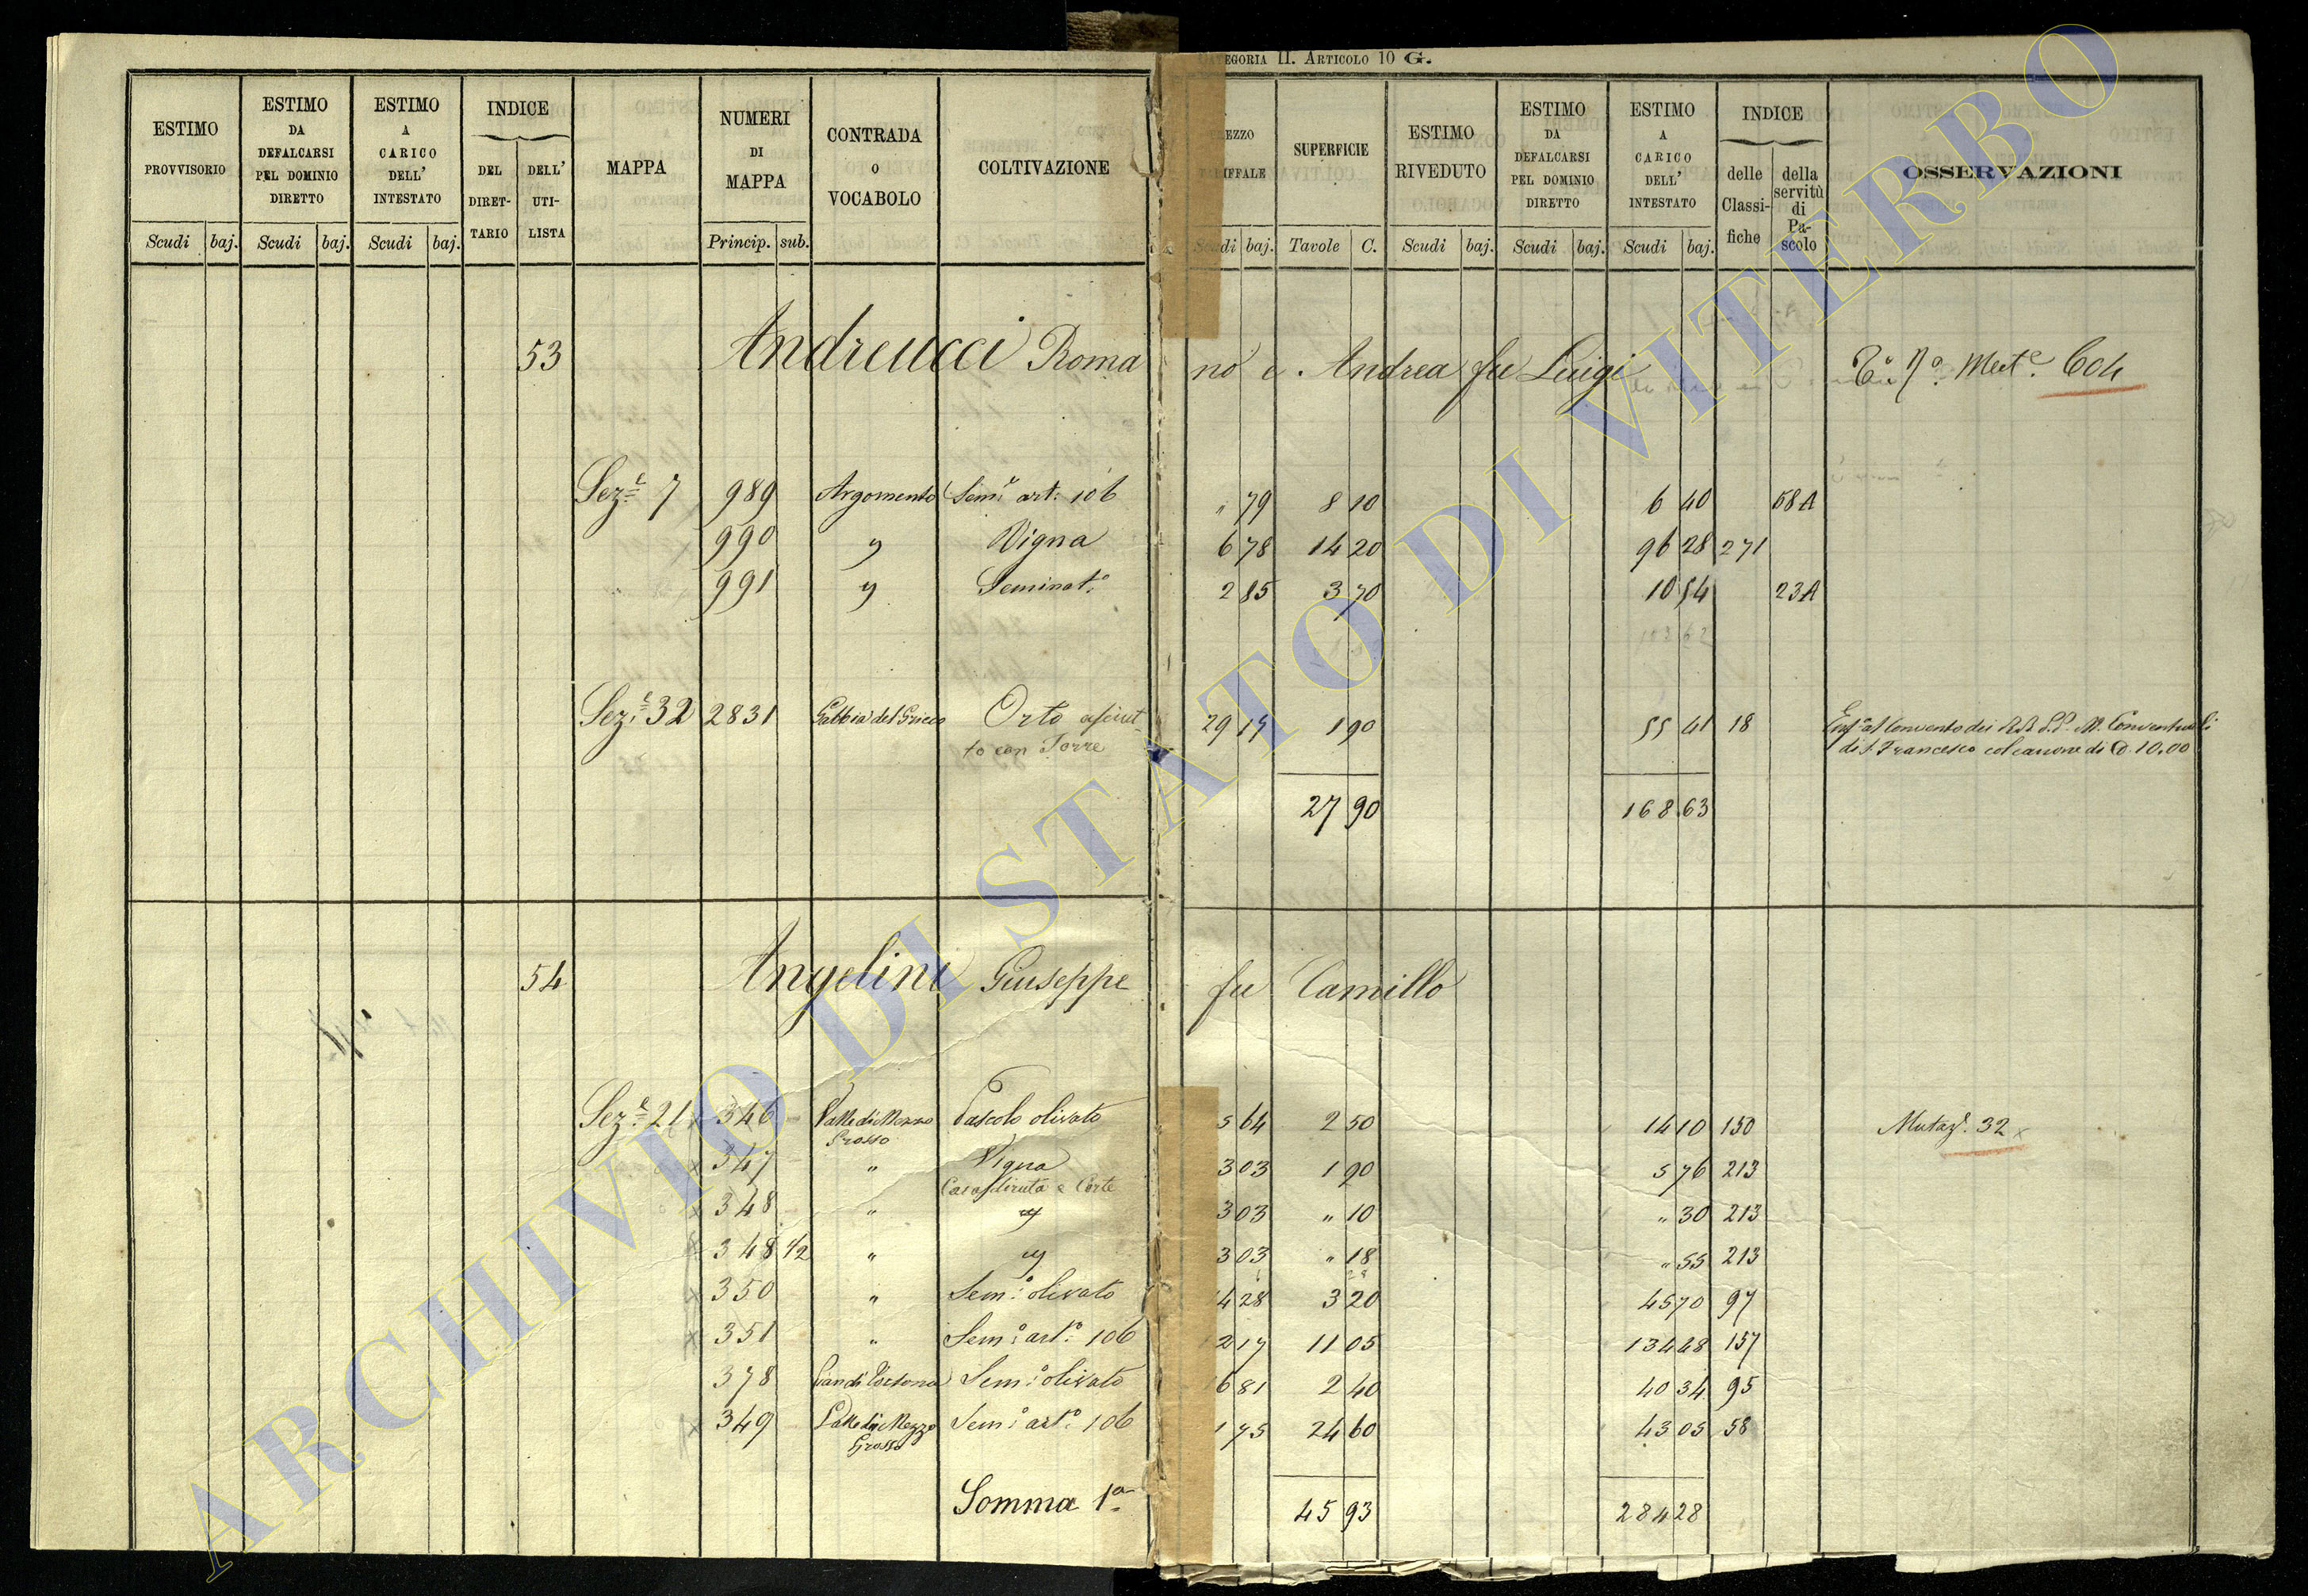 CATEGORIA II. ARTICOLO 10 G.
ESTIMO PROVVISORIO
ESTIMO DA DEFALCARSI PEL DOMINIO DIRETTO
ESTIMO A CARICO DELL' INTESTATO
INDICE
DEL DIRETTARIO
DELL' UTILISTA
MAPPA
NUMERI DI MAPPA
CONTRADA O VOCABOLO
COLTIVAZIONE
SUPERFICIE
ESTIMO RIVEDUTO
ESTIMO DA DEFALCARSI PEL DOMINIO DIRETTO
ESTIMO A CARICO DELL' INTESTATO
INDICE
delle Classifiche
della servitù di Pascolo
OSSERVAZIONI
Scudi baj. Scudi baj. Scudi baj. Princip. sub. Scudi baj. Tavole C. Scudi baj. Scudi baj. Scudi baj.
53 Andreucci Romano e Andrea fu Luigi 604
Sez.e 7 989 Argomento Sem.o art. 106 " 79 8 10 6 40 58A
990 " Vigna 6 78 14 20 96 28 271
991 " Seminat.o 2 85 3 70 10 54 23A
Sez.e 32 2831 Gabbia del Gricco Orto asciut- 29 17 1 90 55 41 18 al Convento dei RR. P.P. M. Conventuali
to con Torre di S. Francesco col canone di 10.00
27 90 168 63
54 Angelini Giuseppe fu Camillo
Sez.e 21 x 346 Valle di Mezzo Pascolo olivato 5 64 2 50 14 10 150 Mutaz. 32 x
Grosso
x 347 " Vigna 3 03 1 90 5 76 213
Casa diruta e Corte
x 348 " " 3 03 " 10 " 30 213
x 348 1/2 " " 3 03 " 18 " 55 213
x 350 " Sem.o olivato 14 28 3 20 45 70 97
x 351 " Sem.o art.o 106 12 17 11 05 134 48 157
378 Pian di Tortona Sem.o olivato 16 81 2 40 40 34 95
x 349 Valle di Mezzo Sem.o art.o 106 1 75 24 60 43 05 58
Grosso
Somma 1a 45 93 284 28
ARCHIVIO DI STATO DI VITERBO